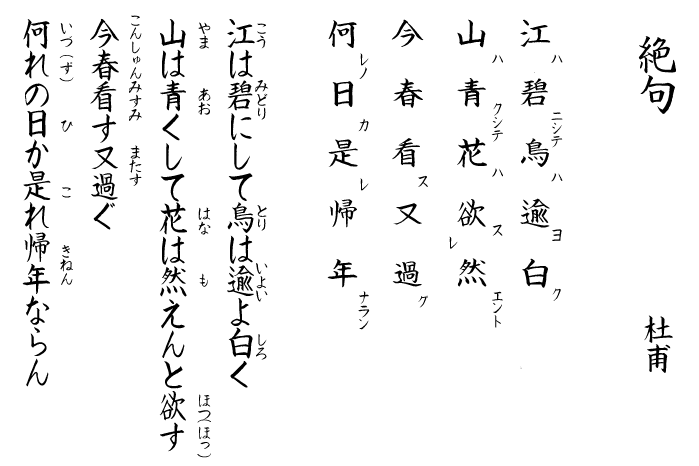 絶句
杜甫
江ハ碧ニシテ鳥ハ逾ヨ白ク
山ハ青クシテ花ハ欲スレ然エント
今春看ス又過グ
何レノ日カ是レ帰年ナラン
江は碧にして鳥は逾よ白く
こう みどり とり いよい しろ
山は青くして花は然えんと欲す
やま あお はな も ほつ(ほっ)
今春看す又過ぐ
こんしゅんみすみ またす
何れの日か是れ帰年ならん
いづ(ず) ひ こ きねん